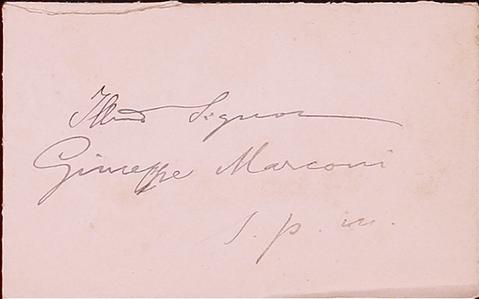 Illmo Signor
Giuseppe Marconi
S. p. m.